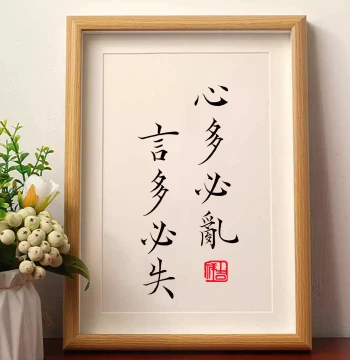 心多必亂
言多必失